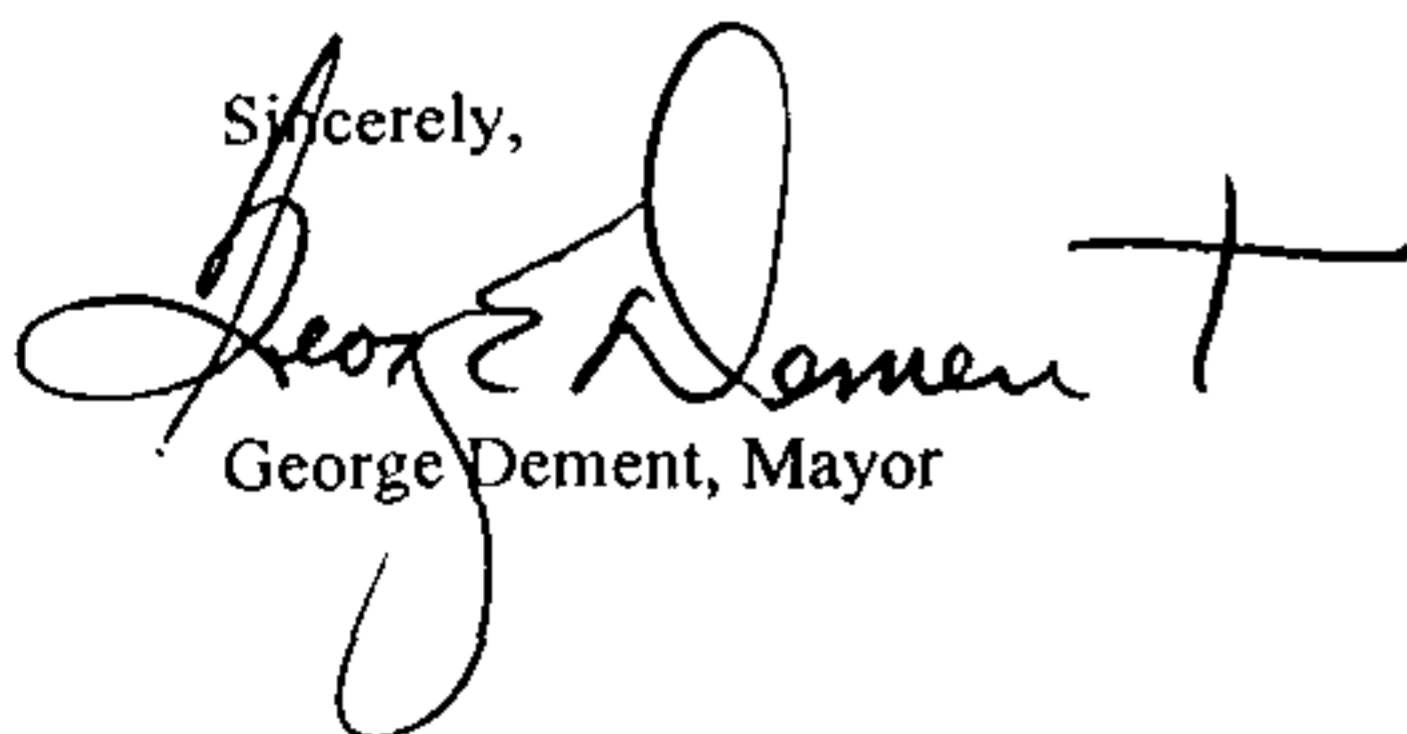 Sincerely,
George Dement
George Dement, Mayor